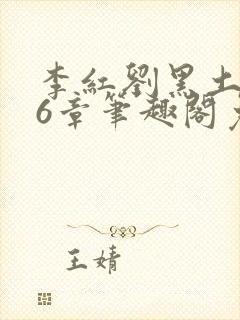 李紅劉黑土
6章筆趣閣
王婧